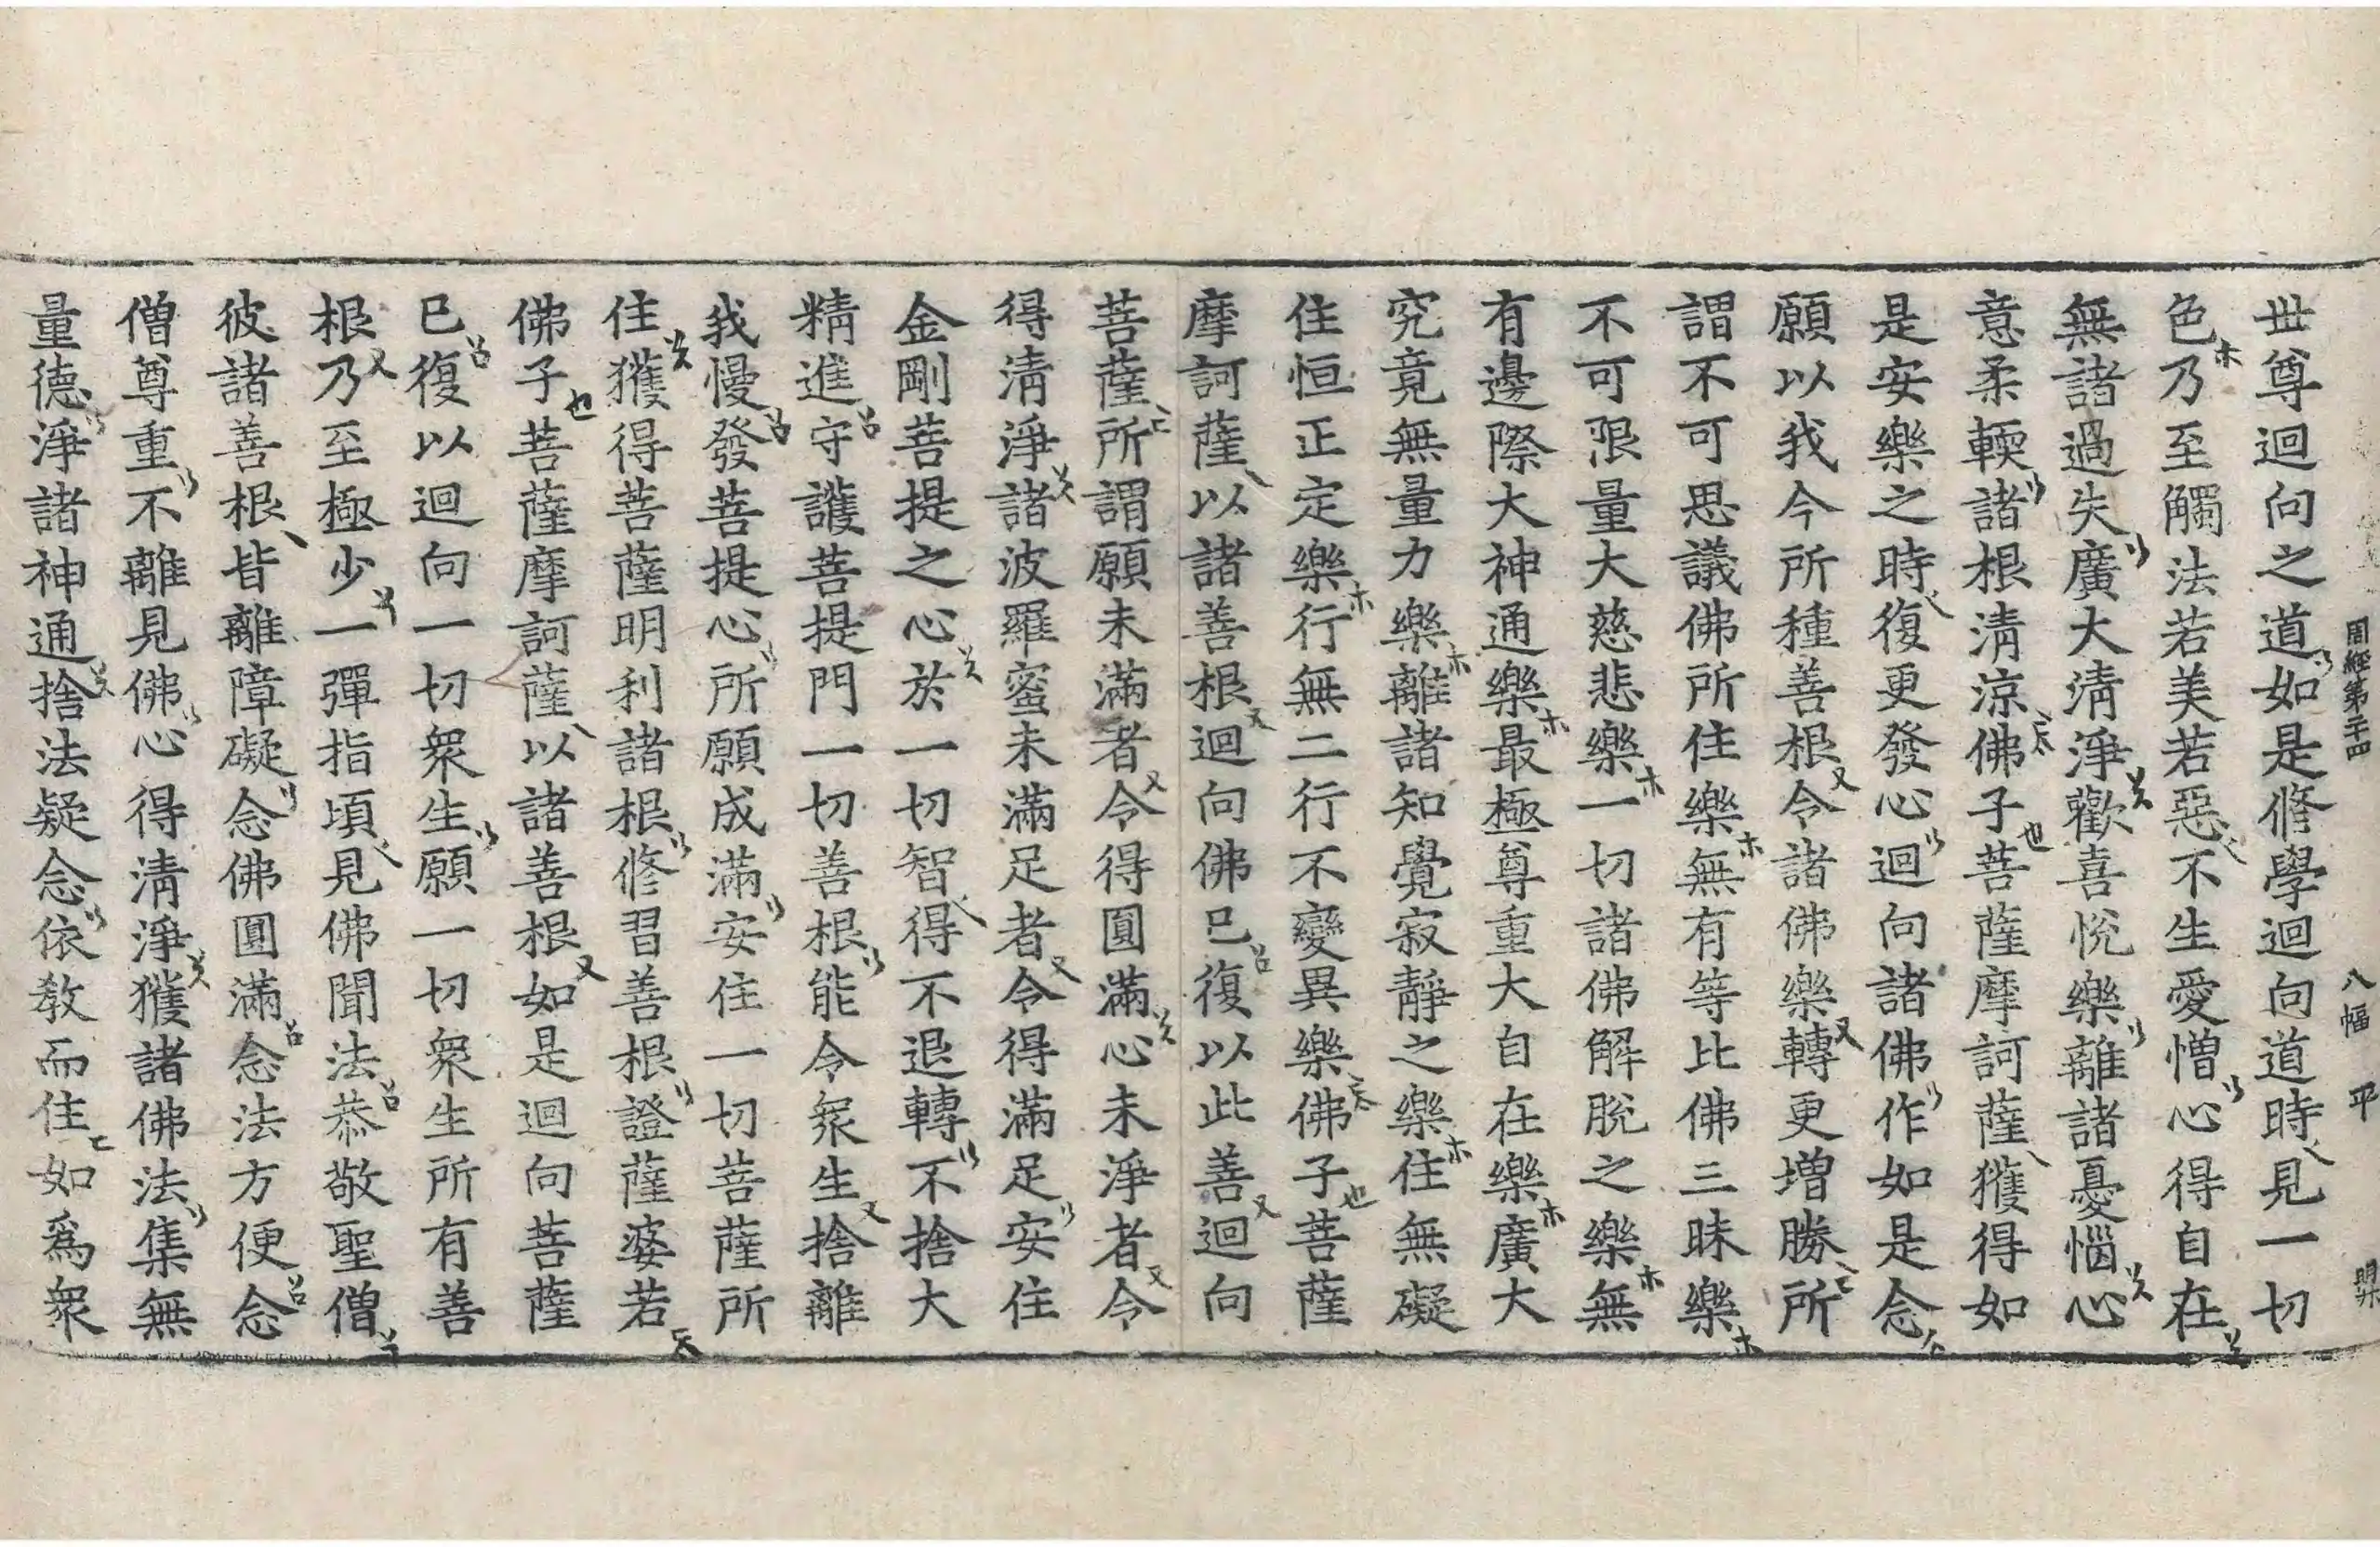 周經第二十四 八幅 平
世尊迴向之道如是修學迴向道時見一切
色乃至觸法若美若惡不生愛憎心得自在
無諸過失廣大清淨歡喜悅樂離諸憂惱心
意柔輭諸根清涼佛子菩薩摩訶薩獲得如
是安樂之時復更發心迴向諸佛作如是念
願以我今所種善根令諸佛樂轉更增勝所
謂不可思議佛所住樂無有等比佛三昧樂
不可限量大慈悲樂一切諸佛解脫之樂無
有邊際大神通樂最極尊重大自在樂廣大
究竟無量力樂離諸知覺寂靜之樂住無礙
住恒正定樂行無二行不變異樂佛子菩薩
摩訶薩以諸善根迴向佛已復以此善迴向
菩薩所謂願未滿者令得圓滿心未淨者令
得清淨諸波羅蜜未滿足者令得滿足安住
金剛菩提之心於一切智得不退轉不捨大
精進守護菩提門一切善根能令衆生捨離
我慢發菩提心所願成滿安住一切菩薩所
住獲得菩薩明利諸根修習善根證薩婆若
佛子菩薩摩訶薩以諸善根如是迴向菩薩
已復以迴向一切衆生願一切衆生所有善
根乃至極少一彈指頃見佛聞法恭敬聖僧
彼諸善根皆離障礙念佛圓滿念法方便念
僧尊重不離見佛心得清淨獲諸佛法集無
量德淨諸神通捨法疑念依教而住如爲衆